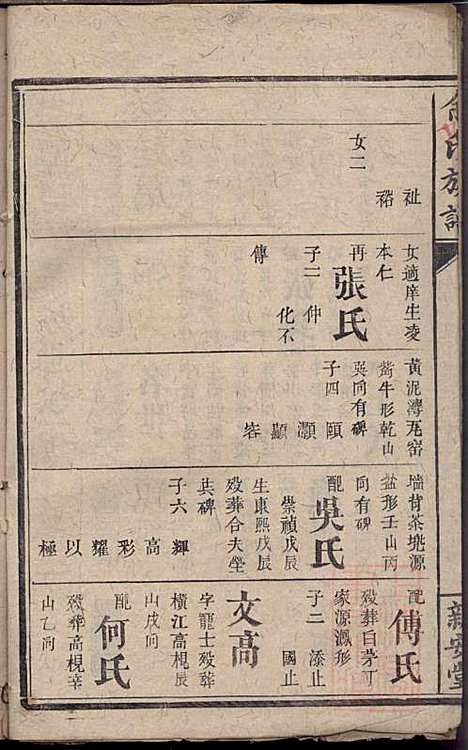 氏族譜
新安堂
祉
裕
女二
女適庠生凌
本仁
再
張氏
子二 仲
化不
傳
黃泥灣瓦窑
牛形乾山
吳向有碑
子四 頤
灝
顯
容
墙背茶塝源
盆形壬山丙
向有碑
配
吳氏
崇禎戊辰
生康熙戊辰
歿葬合夫塋
共碑
子六 輝
高
彩
耀
以
極
配
傅氏
歿葬白茅丁
家源鳳形
子二 添止
國止
文高
字龍士歿葬
橫江高梘辰
山戌向
配
何氏
歿葬高梘辛
山乙向